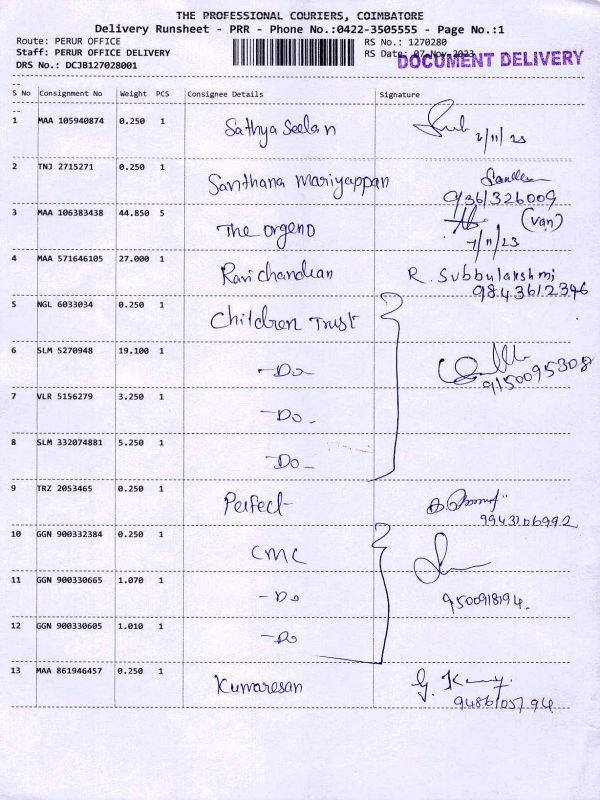 THE PROFESSIONAL COURIERS, COIMBATORE
Delivery Runsheet - PRR - Phone No.:0422-3505555 - Page No.:1
Route: PERUR OFFICE RS No.: 1270280
Staff: PERUR OFFICE DELIVERY RS Date: 07-Nov-2023
DOCUMENT DELIVERY
DRS No.: DCJB127028001
S No Consignment No Weight PCS Consignee Details Signature
1 MAA 105940874 0.250 1 Sathya Seelan 2/11/23
2 TNJ 2715271 0.250 1 Santhana Mariyappan
9361326009
3 MAA 106383438 44.850 5 The Orgeno (Van)
7/11/23
4 MAA 571646105 27.000 1 Ravichandran R. Subbulakshmi
9843612346
5 NGL 6033034 0.250 1 Children Trust
6 SLM 5270948 19.100 1 -Do-
9150095308
7 VLR 5156279 3.250 1 -Do-
8 SLM 332074881 5.250 1 -Do-
9 TRZ 2053465 0.250 1 Perfect
9943106992
10 GGN 900332384 0.250 1 CMC
11 GGN 900330665 1.070 1 -Do
9500918194.
12 GGN 900330605 1.010 1 -Do
13 MAA 861946457 0.250 1 Kumaresan
9486105794